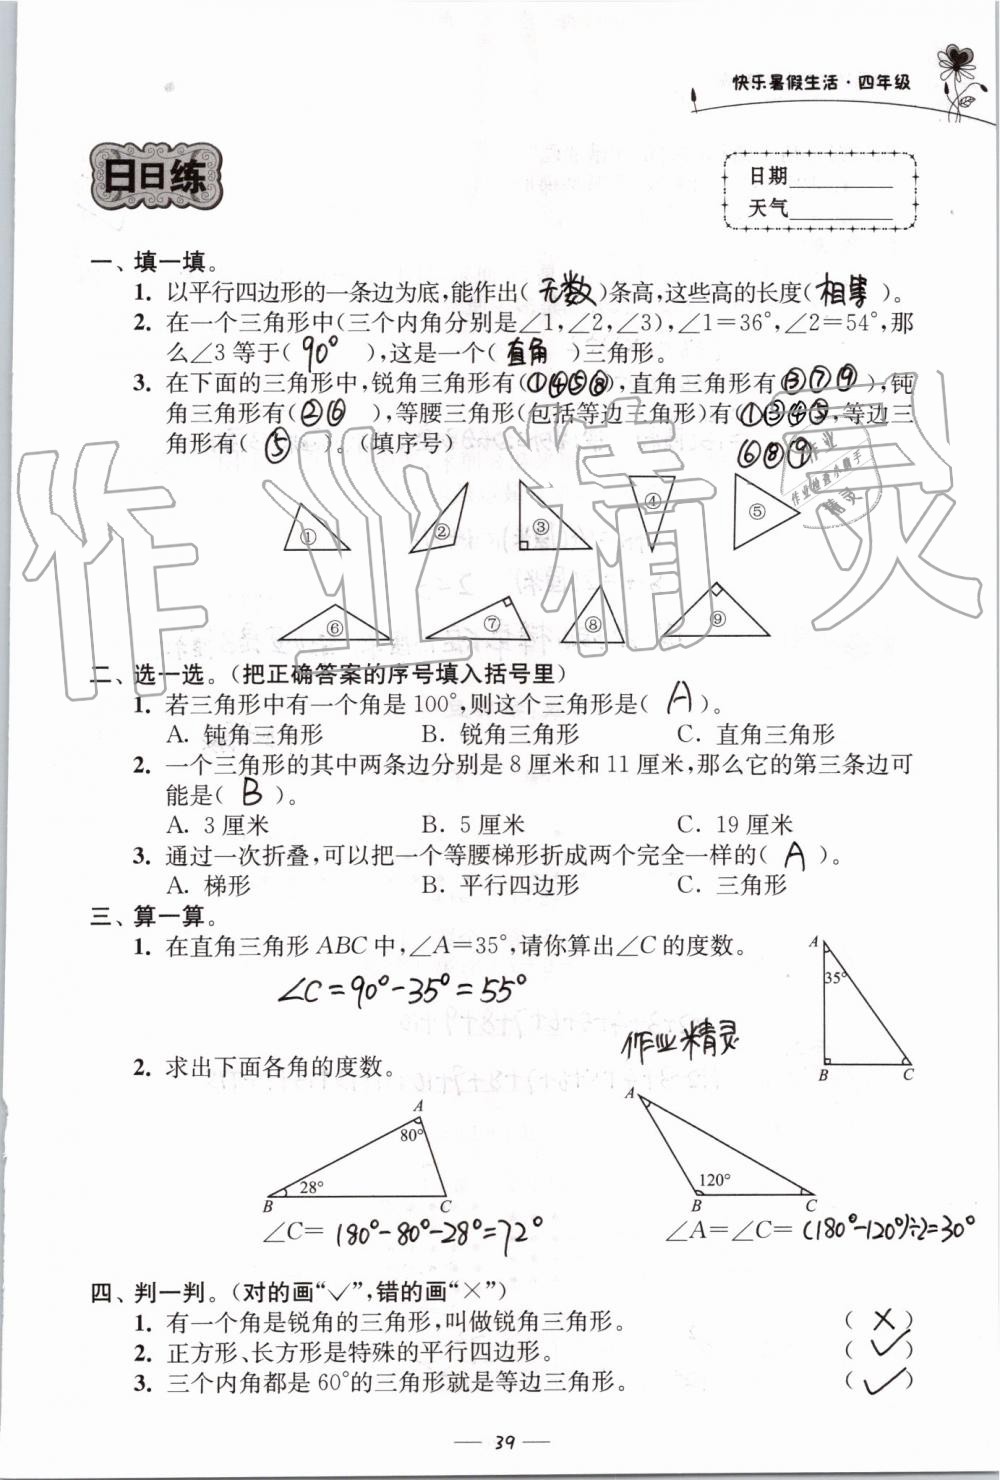 快乐暑假生活·四年级
日日练
日期
天气
一、填一填。
1. 以平行四边形的一条边为底,能作出(无数)条高,这些高的长度(相等)。
2. 在一个三角形中(三个内角分别是∠1,∠2,∠3),∠1=36°,∠2=54°,那
么∠3等于(90°),这是一个(直角)三角形。
3. 在下面的三角形中,锐角三角形有(①④⑤⑧),直角三角形有(③⑦⑨),钝
角三角形有(②⑥),等腰三角形(包括等边三角形)有(①③④⑤,等边三
角形有(⑤)。(填序号) ⑥⑧⑨
① ② ③ ④ ⑤
⑥ ⑦ ⑧ ⑨
二、选一选。(把正确答案的序号填入括号里)
1. 若三角形中有一个角是100°,则这个三角形是(A)。
A. 钝角三角形 B. 锐角三角形 C. 直角三角形
2. 一个三角形的其中两条边分别是8厘米和11厘米,那么它的第三条边可
能是(B)。
A. 3厘米 B. 5厘米 C. 19厘米
3. 通过一次折叠,可以把一个等腰梯形折成两个完全一样的(A)。
A. 梯形 B. 平行四边形 C. 三角形
三、算一算。
1. 在直角三角形ABC中,∠A=35°,请你算出∠C的度数。
∠C=90°-35°=55°
A
35°
B C
作业精灵
2. 求出下面各角的度数。
A
80°
28°
B C
∠C=180°-80°-28°=72°
A
120°
B C
∠A=∠C=(180°-120°)÷2=30°
四、判一判。(对的画“✓”,错的画“×”)
1. 有一个角是锐角的三角形,叫做锐角三角形。 (×)
2. 正方形、长方形是特殊的平行四边形。 (✓)
3. 三个内角都是60°的三角形就是等边三角形。 (✓)
— 39 —
作业精灵
作业
作业检查小帮手
精灵